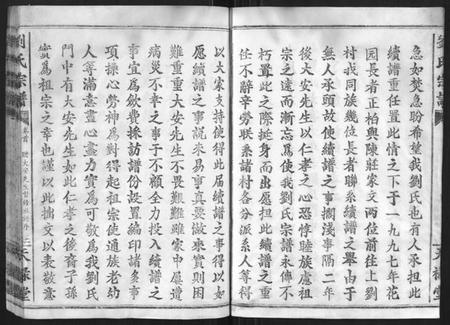 急如焚急盼希望我劉氏也有人承担此
續譜重任置此情之下于一九九七年花
园長者正柏與陳莊家文两位前往上劉
村找同族幾位長者聯系續譜之舉由于
無人承頭故使續譜之事擱浅事隔二年
後大安先生以仁孝之心恐悖睦族慮祖
宗之遠而漸忘爲使我劉氏宗譜永傳不
朽置此之際挺身而出愿担此續譜之重
任不辞辛勞联系諸村各分派系人等得
以大家支持使得此届續譜之事得以如
愿續譜之事説来易事真要做來實則困
難重重大安先生不畏艱難雖家中屢遭
病災不幸之事于不顧全力投入續譜之
事宜爲歛費採訪譜份設置编印諸多事
項操心勞神爲對得起祖宗使通族老幼
人等滿意盡心盡力實爲可敬爲我劉氏
門中有大安先生如此仁孝之後裔子孫
實爲祖宗之幸也謹以此拙文以表敬意
劉氏宗譜
卷首
三
天禄堂